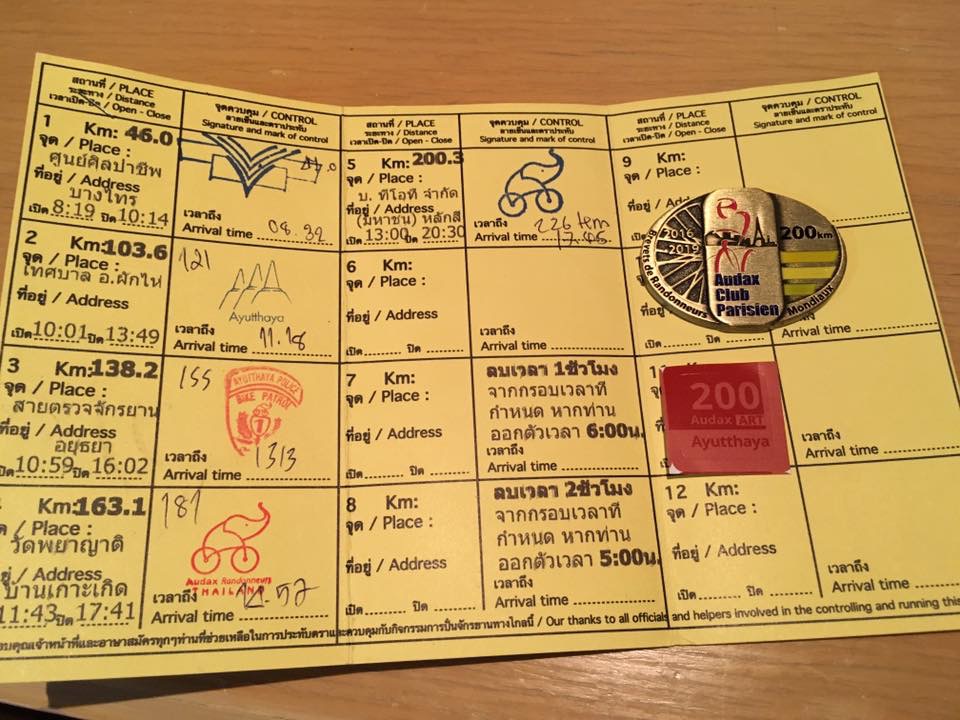 สถานที่ / PLACE
ระยะทาง / Distance
เวลาเปิด-ปิด / Open - Close
จุดควบคุม / CONTROL
ลายเซ็นและตราประทับ
Signature and mark of control
1 Km: 46.0
จุด / Place :
ศูนย์ศิลปาชีพ
ที่อยู่ / Address
บางไทร
เปิด 8:19 ปิด 10:14
เวลาถึง
Arrival time 08.39
2 Km: 103.6
จุด / Place :
เทศบาล อ.ผักไห่
ที่อยู่ / Address
เปิด 10:01 ปิด 13:49
121
Ayutthaya
เวลาถึง
Arrival time 11.18
3 Km: 138.2
จุด / Place :
สายตรวจจักรยาน
ที่อยู่ / Address
อยุธยา
เปิด 10:59 ปิด 16:02
155
AYUTTHAYA POLICE
BIKE PATROL
เวลาถึง
Arrival time 1313
Km: 163.1
จุด / Place :
วัดพยาญาติ
ที่อยู่ / Address
บ้านเกาะเกิด
11:43 ปิด 17:41
181
Audax Randonneurs
THAILAND
เวลาถึง
Arrival time
สถานที่ / PLACE
ระยะทาง / Distance
เวลาเปิด-ปิด / Open - Close
จุดควบคุม / CONTROL
ลายเซ็นและตราประทับ
Signature and mark of control
5 Km: 200.3
จุด / Place :
บ. ทีโอที จำกัด
ที่อยู่ / Address
(มหาชน) หลักสี่
เปิด 13:00 ปิด 20:30
เวลาถึง
226 km
Arrival time
6 Km:
จุด / Place :
ที่อยู่ / Address
เปิด ........ ปิด ........
เวลาถึง
Arrival time
7 Km:
จุด / Place :
ที่อยู่ / Address
เปิด ........ ปิด ........
ลบเวลา 1ชั่วโมง
จากกรอบเวลาที่
กำหนด หากท่าน
ออกตัวเวลา 6:00น.
เวลาถึง
Arrival time
8 Km:
จุด / Place :
ที่อยู่ / Address
เปิด ........ ปิด ........
ลบเวลา 2ชั่วโมง
จากกรอบเวลาที่
กำหนด หากท่าน
ออกตัวเวลา 5:00น.
เวลาถึง
Arrival time
สถานที่ / PLACE
ระยะทาง / Distance
เวลาเปิด-ปิด / Open - Close
จุดควบคุม / CONTROL
ลายเซ็นและตราประทับ
Signature and mark of control
9 Km:
จุด / Place :
ที่อยู่
2016
2019
200km
Brevets de Randonneurs
Mondiaux
Audax
Club
Parisien
200
Audax ART
Ayutthaya
ที่อยู่
เปิด ........ ปิด ........
เวลาถึง
Arrival time
12 Km:
จุด / Place :
ที่อยู่ / Address
เปิด ........ ปิด ........
เวลาถึง
Arrival time
อบคุณเจ้าหน้าที่และอาษาสมัครทุกๆท่านที่ช่วยเหลือในการประทับตราและควบคุมกิจกรรมการปั่นจักรยานทางไกลนี้ / Our thanks to all officials and helpers involved in the controlling and running this